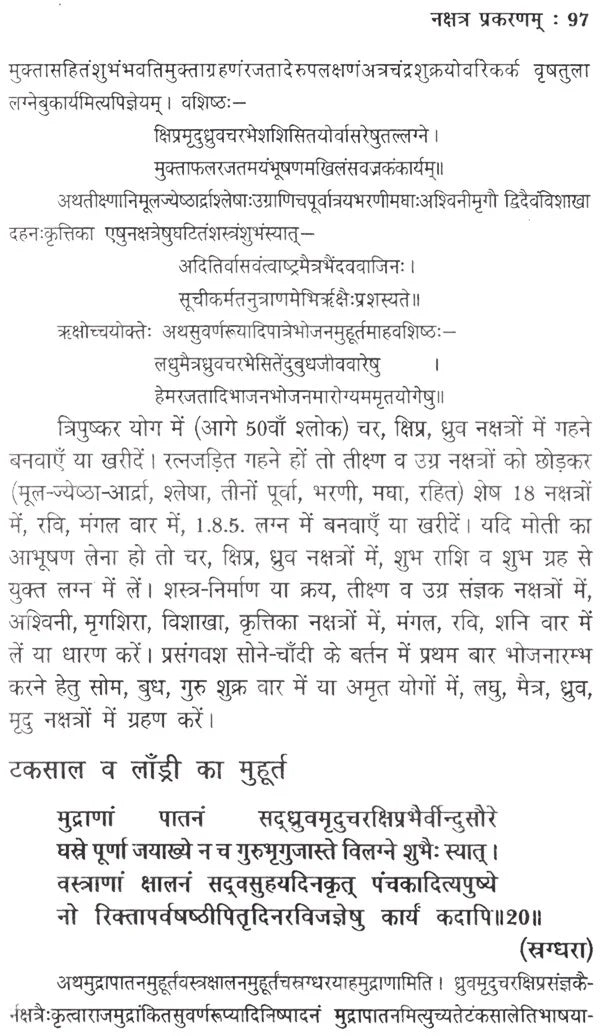 नक्षत्र प्रकरणम् : 97
मुक्तासहितंशुभंभवतिमुक्ताग्रहणंरजतादेरुपलक्षणंअत्रचंद्रशुक्रयोर्वारेकर्क वृषतुला
लग्नेबुकार्यमित्यपिज्ञेयम्। वशिष्ठः—
क्षिप्रमृदुध्रुवचरभेशशिसितयोर्वासरेषुतल्लग्ने।
मुक्ताफलरजतमयंभूषणमखिलंसवज्रकंकार्यम्॥
अथतीक्ष्णानिमूलज्येष्ठार्द्राश्लेषाःउग्राणिचपूर्वात्रयभरणीमघाःअश्विनीमृगौ द्विदैवंविशाखा
दहनःकृत्तिका एषुनक्षत्रेषुघटितंशस्त्रंशुभंस्यात्—
अदितिर्वासवंत्वाष्ट्रमैत्रभैंदववाजिनः।
सूचीकर्मतनुत्राणमेभिर्ऋक्षैःप्रशस्यते॥
ऋक्षोच्चयोक्तेः अथसुवर्णरूयादिपात्रेभोजनमुहूर्तमाहवशिष्ठः—
लधुमैत्रध्रुवचरभेसितेंदुबुधजीववारेषु ।
हेमरजतादिभाजनभोजनमारोग्यममृतयोगेषु॥
त्रिपुष्कर योग में (आगे 50वाँ श्लोक) चर, क्षिप्र, ध्रुव नक्षत्रों में गहने
बनवाएँ या खरीदें। रत्नजड़ित गहने हों तो तीक्ष्ण व उग्र नक्षत्रों को छोड़कर
(मूल-ज्येष्ठा-आर्द्रा, श्लेषा, तीनों पूर्वा, भरणी, मघा, रहित) शेष 18 नक्षत्रों
में, रवि, मंगल वार में, 1.8.5. लग्न में बनवाएँ या खरीदें। यदि मोती का
आभूषण लेना हो तो चर, क्षिप्र, ध्रुव नक्षत्रों में, शुभ राशि व शुभ ग्रह से
युक्त लग्न में लें। शस्त्र-निर्माण या क्रय, तीक्ष्ण व उग्र संज्ञक नक्षत्रों में,
अश्विनी, मृगशिरा, विशाखा, कृत्तिका नक्षत्रों में, मंगल, रवि, शनि वार में
लें या धारण करें। प्रसंगवश सोने-चाँदी के बर्तन में प्रथम बार भोजनारम्भ
करने हेतु सोम, बुध, गुरु शुक्र वार में या अमृत योगों में, लघु, मैत्र, ध्रुव,
मृदु नक्षत्रों में ग्रहण करें।
टकसाल व लाँड्री का मुहूर्त
मुद्राणां पातनं सद्ध्रुवमृदुचरक्षिप्रभैर्वीन्दुसौरे
घस्रे पूर्णा जयाख्ये न च गुरुभृगुजास्ते विलग्ने शुभैः स्यात्।
वस्त्राणां क्षालनं सद्वसुहयदिनकृत् पंचकादित्यपुष्ये
नो रिक्तापर्वषष्ठीपितृदिनरविजज्ञेषु कार्यं कदापि॥20॥
(स्रग्धरा)
अथमुद्रापातनमुहूर्तवस्त्रक्षालनमुहूर्तंचस्रग्धरयाहमुद्राणामिति। ध्रुवमृदुचरक्षिप्रसंज्ञकै-
र्नक्षत्रैःकृत्वाराजमुद्रांकितसुवर्णरूप्यादिनिष्पादनं मुद्रापातनमित्युच्यतेटंकसालेतिभाषया-